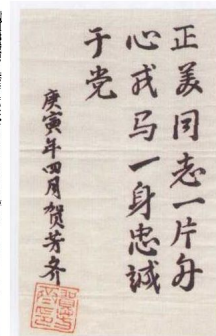 正美同志一片丹
心戎马一身忠誠
于党
庚寅年四月贺芳齐